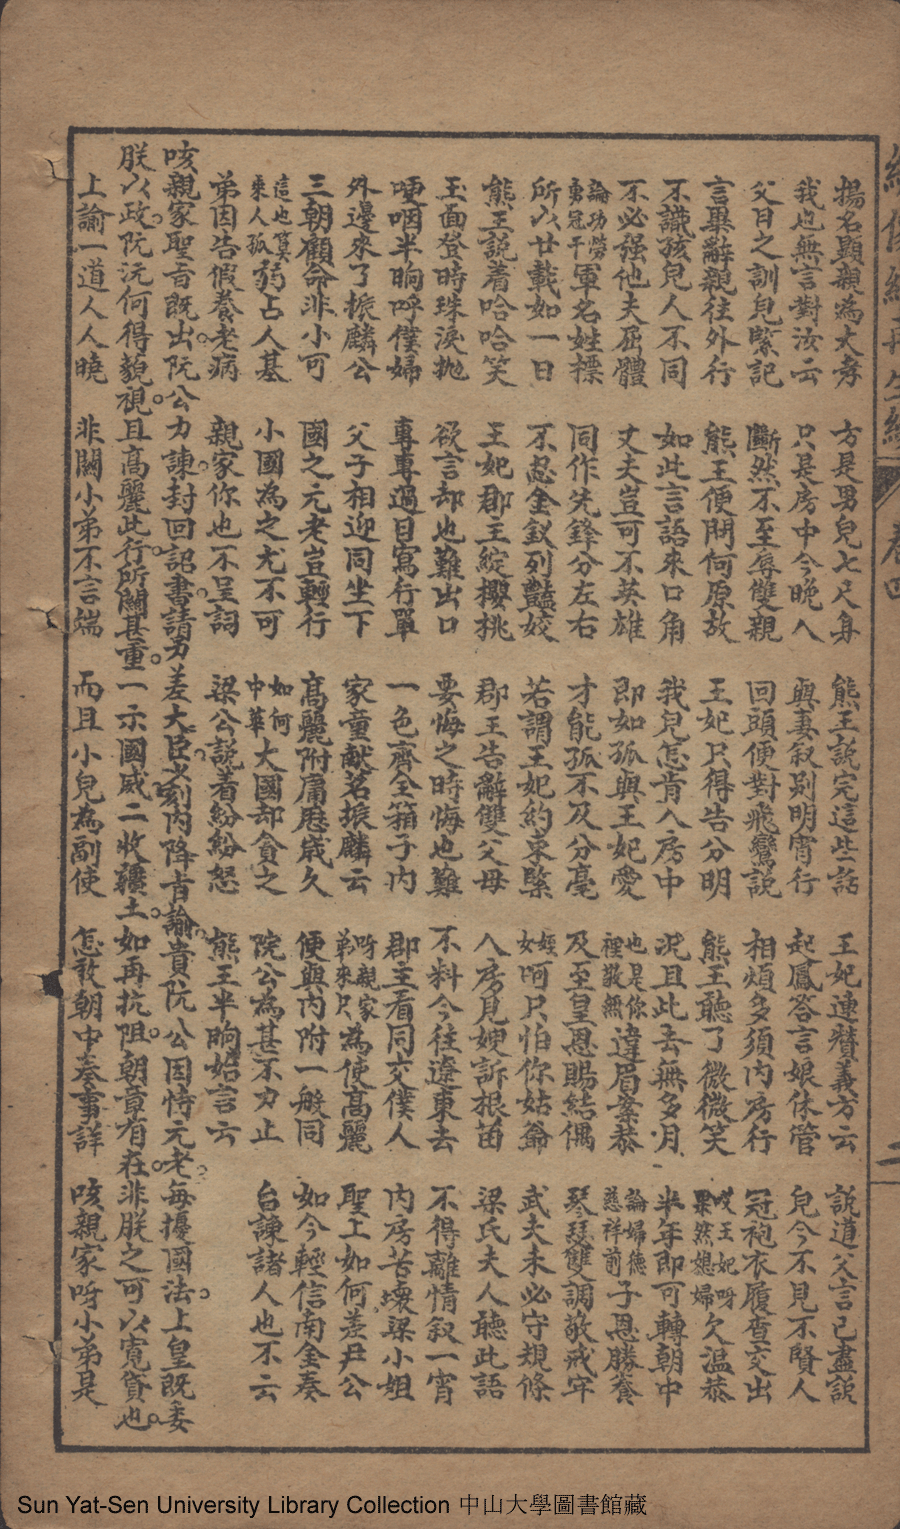 揚名顯親為大孝 方是男兒七尺身 熊王說完這些話 王妃連贊義方云 說道父言已盡談
我也無言對汝云 只是房中今晚入 與妻叙別明宵行 起鳳答言娘休管 兒今不見不賢人
父日之訓兒緊記 斷然不至辱雙親 回頭便對飛鸞說 相煩多須內房行 冠袍衣履查交出
言畢辭親往外行 熊王便問何原故 王妃只得告分明 熊王聽了微微笑 哎王妃呀果然媳婦欠溫恭
不識孩兒人不同 如此言語來口角 我兒怎肯入房中 况且此去無多月 半年即可轉朝中
不必强他夫屈體 丈夫豈可不英雄 即如孤與王妃愛 也是你裡敬無違眉案恭 論婦德慈祥前子恩勝養
論功勞勇冠千軍名姓標 同作先鋒分左右 才能孤不及分毫 及至皇恩賜結偶 琴瑟雙調敬戒牢
所以廿載如一日 不忍金釵列豔姣 若謂王妃約束緊 姪女呵只怕你姑爺 武夫未必守規條
熊王說着哈哈笑 王妃郡王綻櫻桃 郡王告辭雙父母 入房見嫂訴根苗 梁氏夫人聽此語
玉面登時珠淚拋 欲言却也難出口 要悔之時悔也難 不料今往遼東去 不得離情叙一宵
哽咽半晌呼僕婦 專專過目寫行單 一色齊全箱子內 郡主看同交僕人 內房苦壞梁小姐
外邊來了振麟公 父子相迎同坐下 家童献茗振麟云 呀親家弟來只為使高麗 聖上如何差尹公
三朝顧命非小可 國之元老豈輕行 高麗附庸歷歲久 便與內附一般同 如今輕信南金奏
這也算乘人孤弱占人基 小國為之尤不可 如何中華大國却貪之 院公為甚不力止 台諫諸人也不云
弟因告假養老病 親家你也不呈詞 梁公說着紛紛怒 熊王半晌始言云
咳親家聖旨既出。阮公力諫。封回詔書。請另差大臣。又刻內降旨諭。貴阮公因恃元老。每擾國法。上皇既委
朕以政。阮沅何得藐視。且高麗此行。所關甚重。一示國威二收疆土。如再抗阻。朝章有在。非朕之可以寬貸也。
上諭一道人人曉 非關小弟不言端 而且小兒為副使 怎敢朝中奏事詳 咳親家呀小弟是
再生緣 卷四
二
Sun Yat-Sen University Library Collection 中山大學圖書館藏